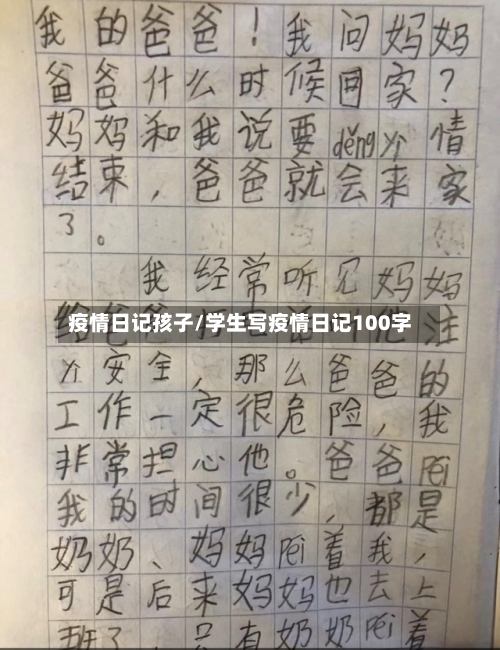 我的爸爸！我问妈妈
爸爸什么时候回家？
妈妈和我说要děngyì情
结束，爸爸就会来家
了。
我经常听见妈妈
疫情日记孩子/学生写疫情日记100字
给爸爸打电话叫他注
yì安全，那么爸爸的
工作一定很危险，我
非常担心他。爸爸péi
我的时间很少，都是
奶奶、妈妈péi着我，
可是后来妈妈也去上
班了，只有奶奶péi着